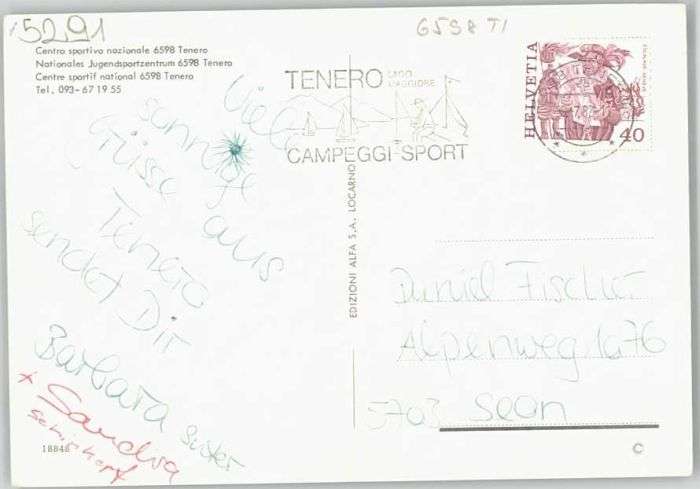 5291
6598 TI
Centro sportivo nazionale 6598 Tenero
Nationales Jugendsportzentrum 6598 Tenero
Centre sportif national 6598 Tenero
Tel. 093-67 19 55
TENERO LAGO MAGGIORE
CAMPEGGI-SPORT
HELVETIA
40
Viele
sonnige
Grüsse aus
Tenero
sendet Dir
Barbara Suter
+ Sandra
EDIZIONI ALFA S.A. LOCARNO
Daniel Fischer
Alpenweg 1076
5703 Seon
18848
C